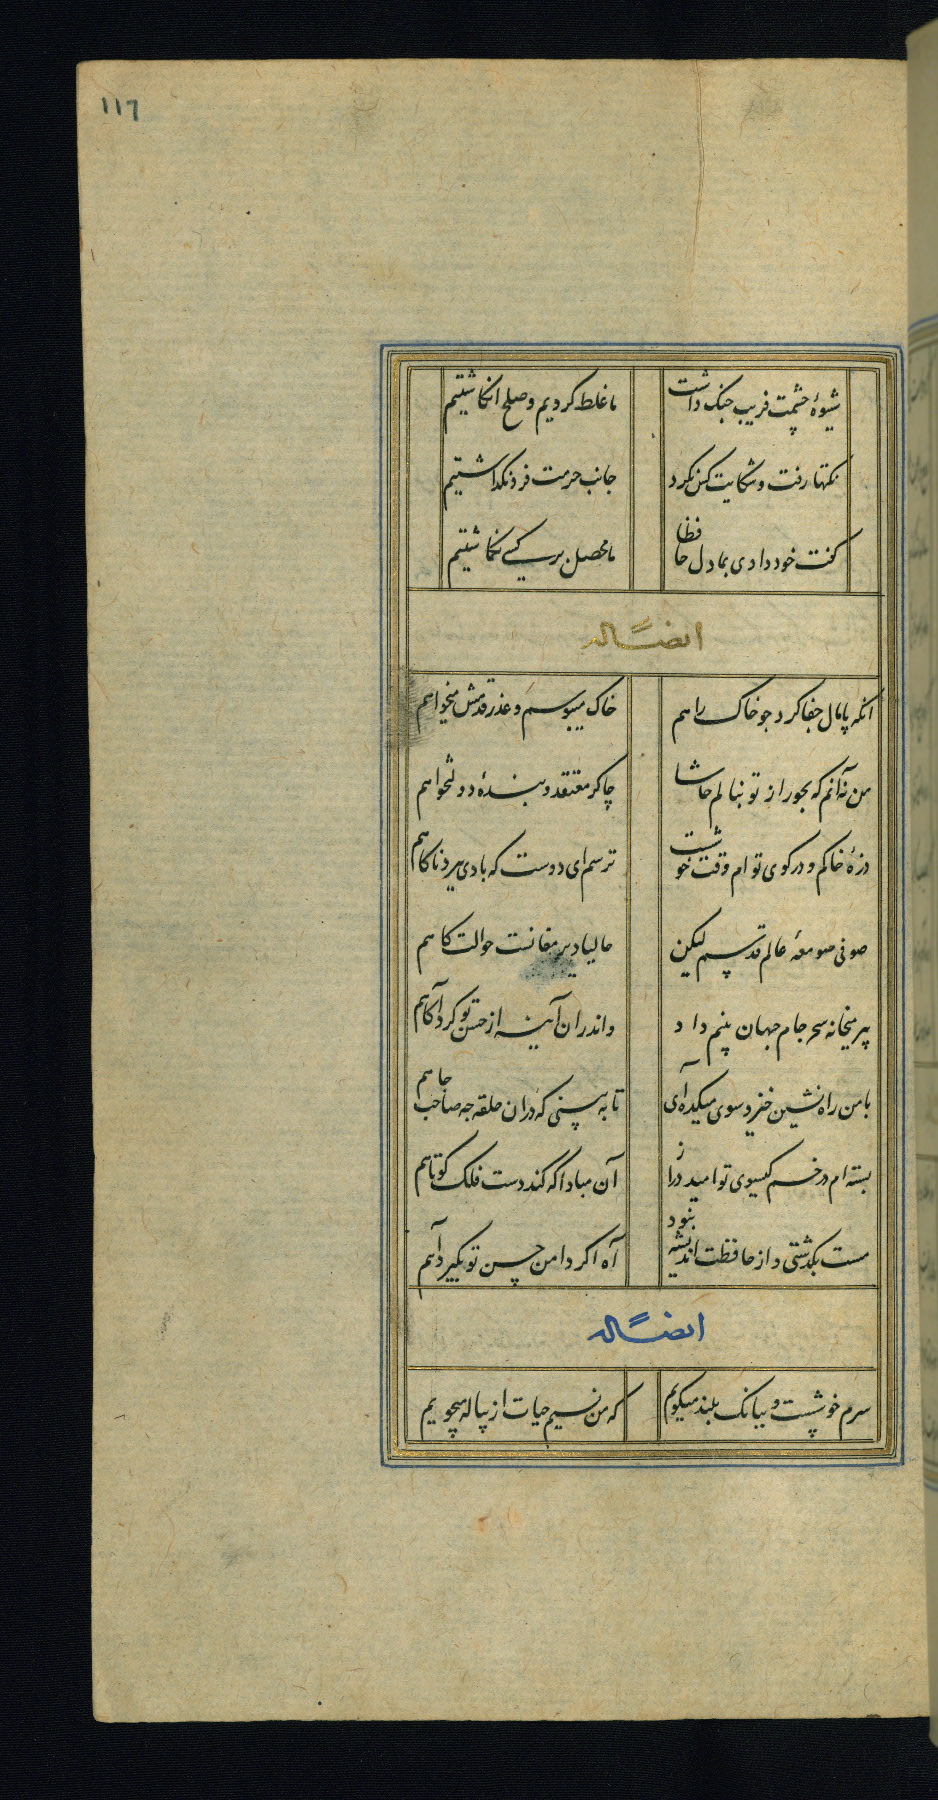 ١١٦
شیوهٔ چشمت فریب جنک داشت ما غلط کردیم و صلح انکاشتیم
نکتها رفت و شکایت کس نکرد جانب حرمت فرو نکذاشتیم
کفت خود دادی بما دل حافظا ما محصل بر کسی نکماشتیم
ایضاً له
انکه پامال جفا کرد جو خاک راهم خاک میبوسم و عذر قدمش میخواهم
من نه آنم که بجور از تو بنالم حاشا چاکر معتقد و بندهٔ دولتخواهم
ذرهٔ خاکم و در کوی توام وقت خوشست ترسم ای دوست که بادی ببرد ناکاهم
صوفی صومعهٔ عالم قدسیم لیکن حالیا دیر مغانست حوالت کاهم
پیر میخانه سحر جام جهان بینم داد واندران آینه از حسن تو کرد آکاهم
با من راه نشین خیز و سوی میکده آی تا به بینی که دران حلقه جه صاحب جاهم
بسته ام در خم کیسوی تو امید دراز آن مبادا که کند دست فلک کوتاهم
مست بکذشتی و از حافظت اندیشه نبود آه اکر دامن حسن تو بکیرد آهم
ایضاً له
سرم خوشست و ببانک بلند میکویم که من نسیم حیات از پیاله میجویم